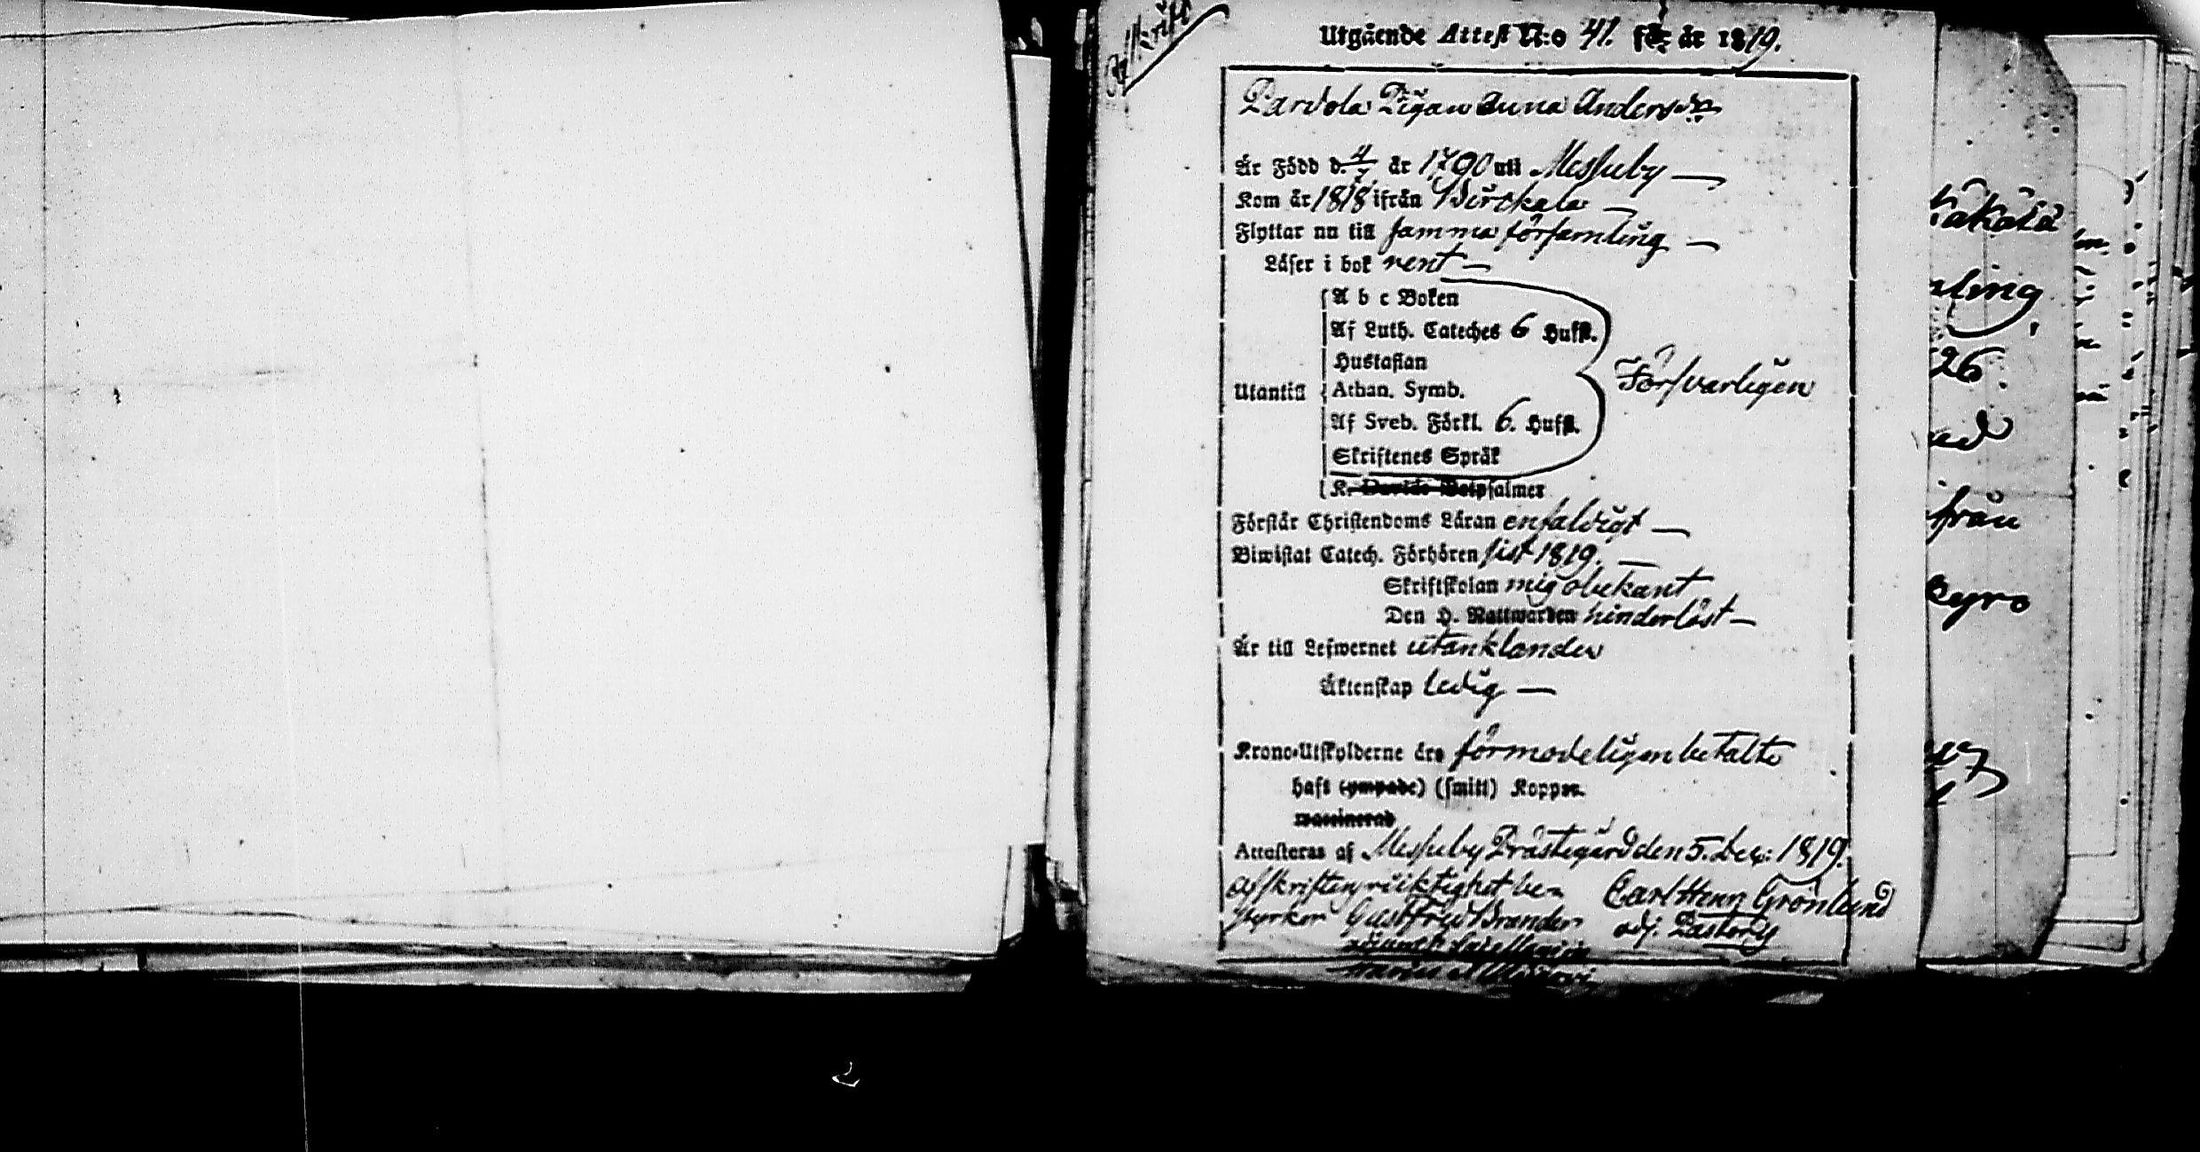 Afskrift
Utgående Attest N:o 41. för år 1819.
Pardola Pigan Anna Andersdr
Är Född d. 4/7 år 1790 uti Messuby —
Kom år 1818 ifrån Birckala —
Flyttar nu till samma församling —
Läser i bok rent —
A b c Boken
Af Luth. Cateches 6 Hufst.
Hustaflan
Utantill Athan. Symb. Försvarligen
Af Sveb. Förkl. 6. Hufst.
Skriftenes Språk
K. Davids Botpsalmer
Förstår Christendoms Läran enfaldigt —
Biwistat Catech. Förhören sist 1819. —
Skriftskolan mig obekant
Den H. Nattwarden hinderlöst —
Är till Lefwernet utan klander
Äktenskap ledig —
Krono-Utskylderne äro förmodeligen betalte
haft (ympade) (smitt) Koppor.
vaccinerad
Attesteras af Messuby Prästegård den 5. Dec: 1819.
Afskriftens riktighet be- Carl Henr Grönlund
styrker Gust Fred Brander adj. Pastoris
kakola
ling
26.
ad
ifrån
kyro